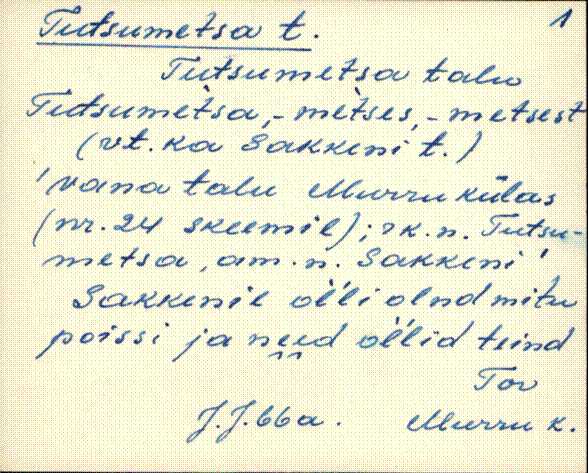 Tutsumetsa t. 1
Tutsumetsa talu
Tutsumètsa, -mètses, -metsest
(vt. ka Sakkeni t.)
'vana talu Murru külas
(nr. 24 skeemil); rk. n. Tutsu-
metsa, am. n. Sakkeni'
Sakkenil òlli olnd mitu
poissi ja need òllid teind
Tor
J.J. 66 a. Murru k.